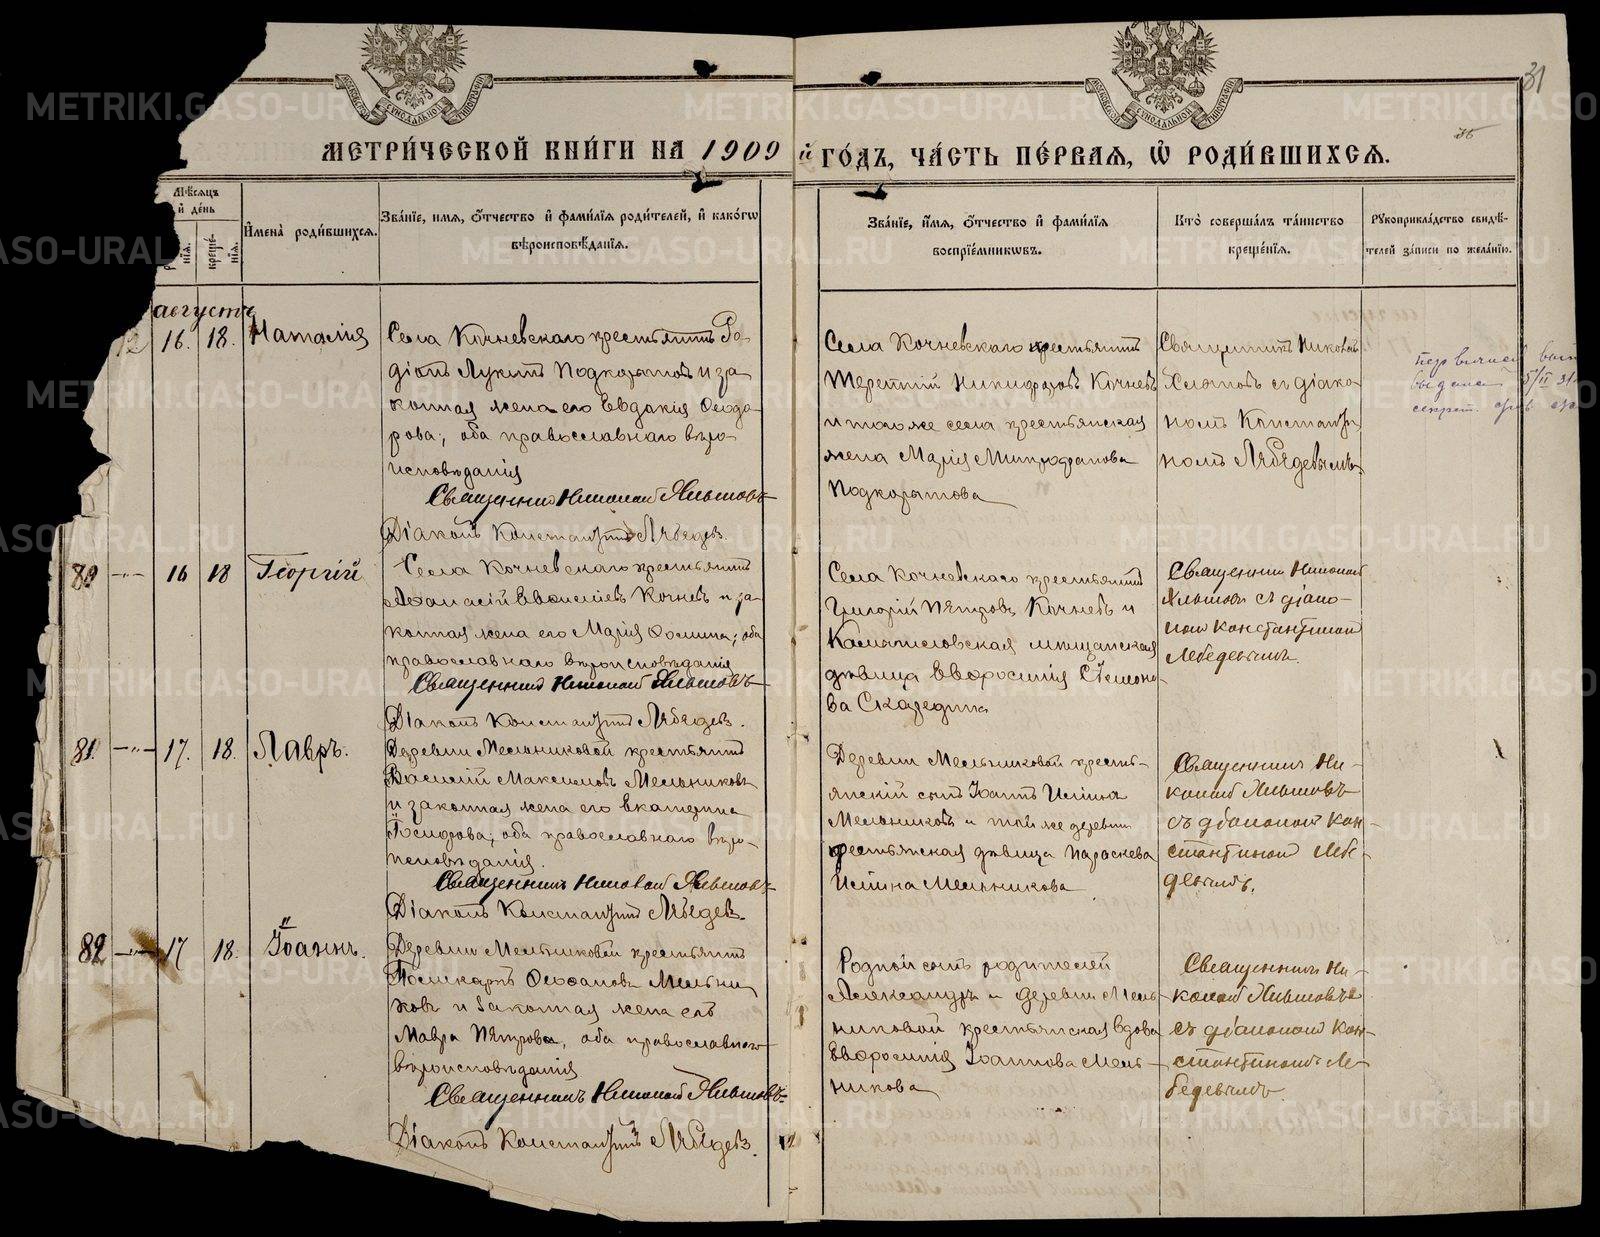 МЕТРИ́ЧЕСКОЙ КНИ́ГИ НА 1909 й ГО́ДЪ, ЧА́СТЬ ПЕ́РВАЯ, Ѡ РОДИ́ВШИХСЯ.
31
Мѣсяцъ
и де́нь
креще́-
нїя.
Имена̀ роди́вшихся.
Зва́нїе, имя, о́тчество и фами́лїя роди́телей, и како́гѡ
вѣроисповѣ́данїя.
Зва́нїе, имя, о́тчество и фами́лїя
воспрїе́мниковъ.
Кто̀ соверша́лъ та́инство
креще́нїя.
Рукоприкла́дство свидѣ́-
телей за́писи по жела́нїю.
августъ
16. 18. Наталія
Села Кочневскаго крестьянинъ Ро-
діонъ Лукинъ Подкорытовъ и за-
конная жена его Евдокія Ѳеодо-
рова, оба православнаго вѣро-
исповѣданія
Священникъ Николай Хлыновъ
Діаконъ Константинъ Лебедев.
Села Кочневскаго крестьянинъ
Терентій Никифоровъ Кочневъ
и того же села крестьянская
жена Марія Митрофанова
Подкорытова
Священникъ Николай
Хлыновъ съ діако-
номъ Константи-
номъ Лебедевымъ
80 -„- 16 18 Георгій
Села Кочневскаго крестьянинъ
Аѳанасій Евсиѳіевъ Кочневъ и за-
конная жена его Марія Ѳомина; оба
православнаго вѣроисповѣданія
Священникъ Николай Хлыновъ
Діаконъ Константинъ Лебедев.
Села Кочневскаго крестьянинъ
Григорій Петровъ Кочневъ и
Камышловская мѣщанская
дѣвица Евфросинія Семено-
ва Скаредина
Священникъ Николай
Хлыновъ съ діако-
номъ Константиномъ
Лебедевымъ.
81. -„- 17. 18. Лавръ.
Деревни Мельниковой крестьянинъ
Василій Максимовъ Мельниковъ
и законная жена его Екатерина
оба православнаго вѣро-
исповѣданія.
Священникъ Николай Хлыновъ
Діаконъ Константинъ Лебедев.
Деревни Мельниковой кресть-
янскій сынъ Іоаннъ Ильинъ
Мельниковъ и той же деревни
крестьянская дѣвица Параскева
Ильина Мельникова
Священникъ Ни-
колай Хлыновъ
съ діакономъ Кон-
стантиномъ Лебе-
девымъ.
82 -„- 17 18. Іоаннъ.
Деревни Мельниковой крестьянинъ
Поликарпъ Ѳеофановъ Мельни-
ковъ и законная жена его
Мавра Петрова, оба православнаго
вѣроисповѣданія
Священникъ Николай Хлыновъ
Діаконъ Константинъ Лебедев.
Родной сынъ родителей
Александръ и деревни Мель-
никовой крестьянская вдова
Евфросинія Іоаннова Мель-
никова
Священникъ Ни-
колай Хлыновъ
съ діакономъ Кон-
стантиномъ Ле-
бедевымъ
METRIKI.GASO-URAL.RU